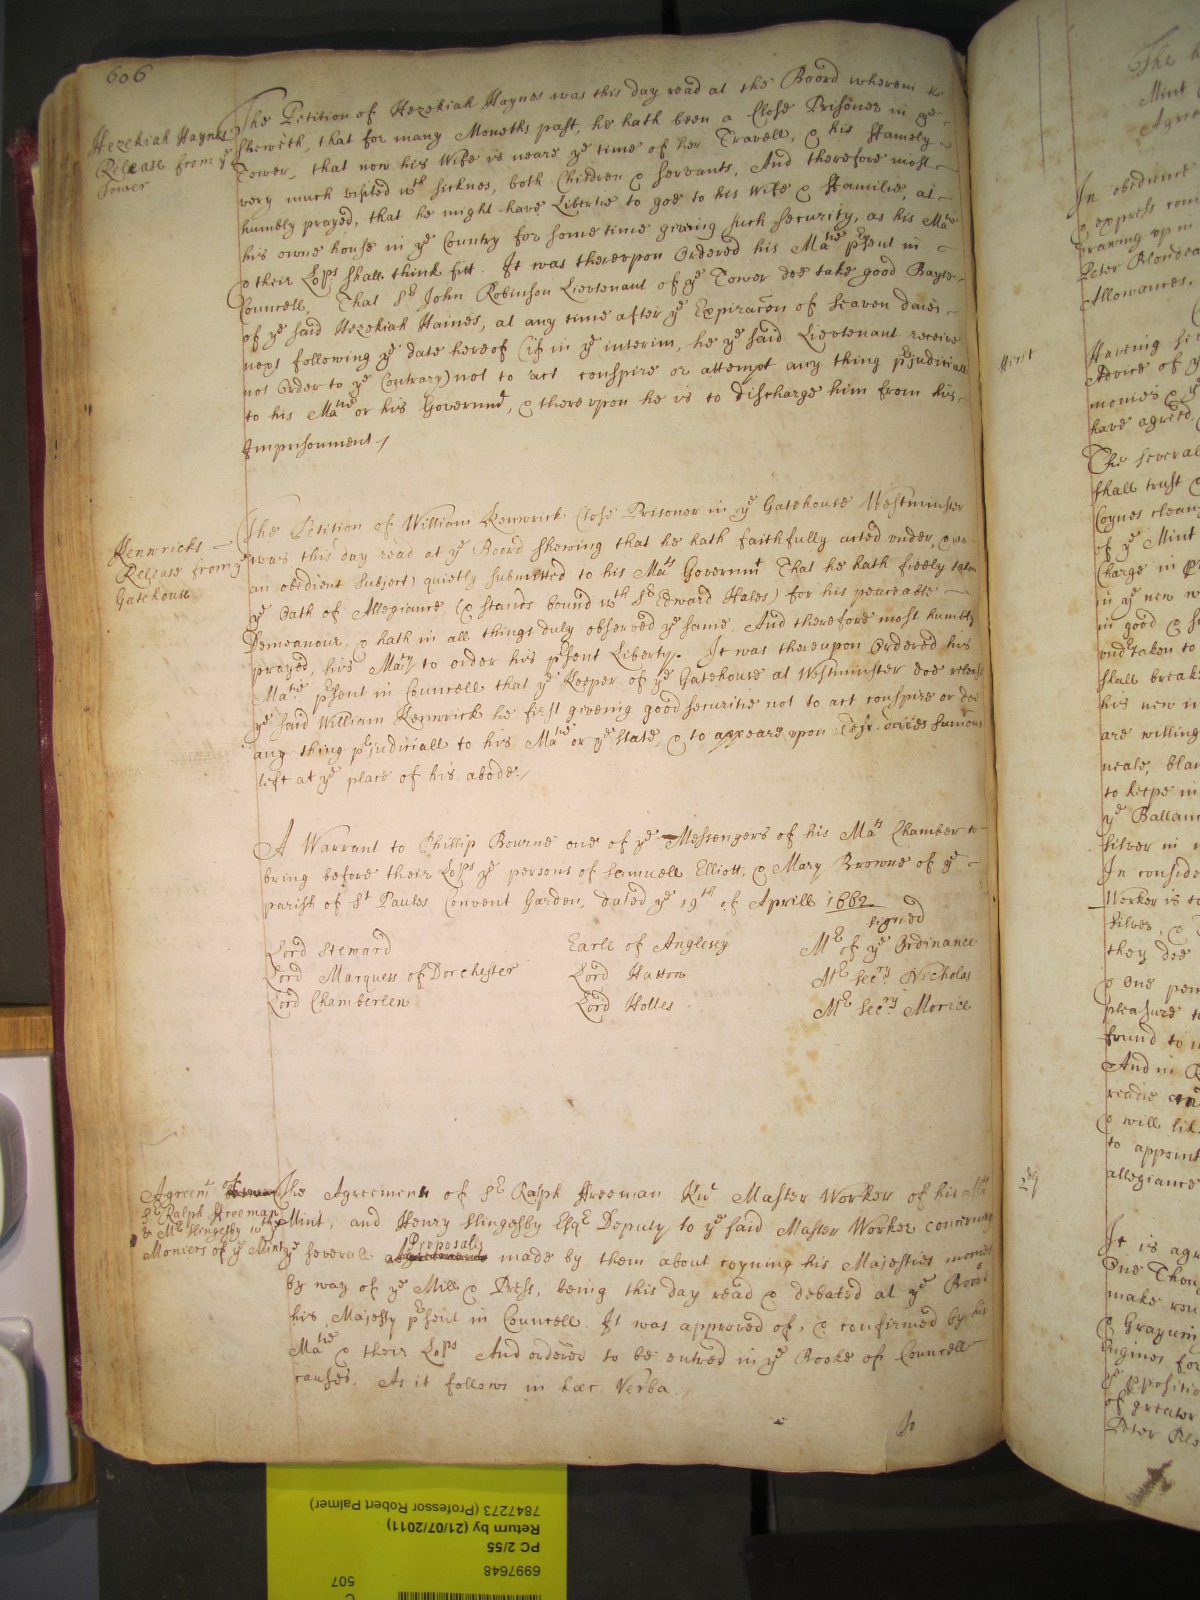 606
Hezekiah Haynes
Release from ye
Tower
The Petition of Hezekiah Haynes was this day read at the Board wherein he
sheweth, that for many Moneths past, he hath been a Close Prisoner in ye
Tower, that now his Wife is neare ye time of her Travell, & his ffamely
very much visited wth sicknes, both Children & servants, And therefore most
humbly prayed, that he might have Libertie to goe to his Wife & ffamilie, at
his owne house in ye Country for some time giveing such security, as his Matie
& their Lops shall think fitt. It was thereupon Ordered his Matie pſent in
Councell, That Sr John Robinson Lieutenant of ye Tower doe take good Bayle
of ye said Hezekiah Haines, at any time after ye Expiracon of seaven daies
next following ye date hereof (if in ye interim, he ye said Lieutenant receive
not Order to ye Contrary) not to act conspire or attempt any thing pjudiciall
to his Matie or his Governmt, & thereupon he is to discharge him from his
Imprisonment /
Kenwricks
Release from ye
Gatehouse
The Petition of William Kenwrick Close Prisoner in ye Gatehouse Westminster
was this day read at ye Board shewing that he hath faithfully acted under, & as
an obedient subject) quietly submitted to his Mats Governmt That he hath freely taken
ye Oath of Allegiance (& stands bound wth Sr Edward Hales) for his peaceable
Demeanour, & hath in all things duly observed ye same, And therefore most humbly
prayed, his Maty to order his pſent Liberty. It was thereupon Ordered his
Matie pſent in Councell that ye Keeper of ye Gatehouse at Westminster doe release
ye said William Kenwrick he first giveing good securitie not to act conspire or doe
any thing pejudiciall to his Matie or ye state, & to appeare upon daies sumons
left at ye place of his abode. /
A Warrant to Phillip Bourne one of ye Messengers of his Mats Chamber to
bring before their Lops ye persons of Samuell Elliott, & Mary Browne of ye
parish of St Paules Convent Garden, dated ye 19th of Aprill 1662
signed
Lord Steward Earle of Anglesey Mr of ye Ordinance
Lord Marquess of Dorchester Lord Hatton Mr Secry Nicholas
Lord Chamberlen Lord Holles Mr Secry Morice
Agreemt of
Sr Ralph ffreeman
& Mr Slingesby wth ye
Moniers of ye Mint
The Agreement of Sr Ralph ffreeman Knt Master Worker of his Mats
Mint, and Henry Slingesby Esqr Deputy to ye said Master Worker concerning
ye severall Proposalls made by them about coyning his Majesties monies
by way of ye Mill & Press, being this day read & debated at ye Board
his Majesty pſent in Councell. It was approved of, & confirmed by his
Matie & their Lops And ordered to be entred in ye Booke of Councell
causes. As it follows in hæc Verba.
The
Mint
Agree
In obedience
& express com
drawing up in
Peter Blondea
Allowances.
Mint
Having
Advice of ye
monies & ye
have agreed
The severall
shall trust
Coynes cleane
of ye Mint
Charge in
in ye new
in good &
undtaken to
shall break
his new
are willing
neale, blan
to keepe in
ye Ballan
silver in
In conside
Worker is to
silver, &
they doe
& one pen
pleasure to
found to
And in
readie
& will lik
to appoint
allegiance
It is agr
One Thou
make
& Grayning
Engines for
ye ppositio
of greater
Peter Blo
7847273 (Professor Robert Palmer)
Return by (21/07/2011)
PC 2/55
6997648
507